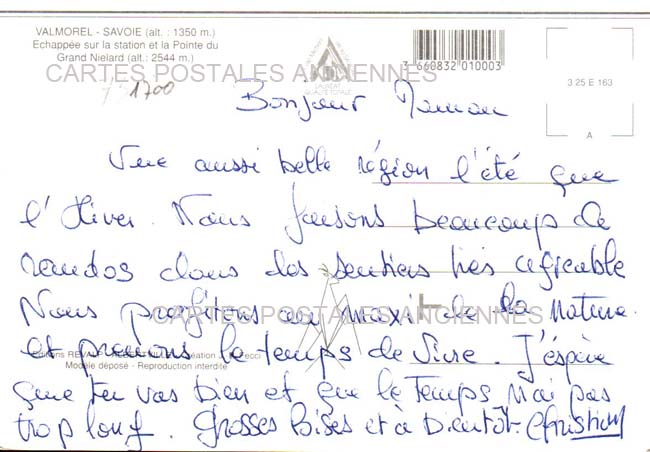 VALMOREL - SAVOIE (alt. : 1350 m.)
Echappée sur la station et la Pointe du
Grand Nielard (alt.: 2544 m.)
CARTES POSTALES ANCIENNES
1700
3 660832 010003
3 25 E 163
A
Bonjour Maman
Une aussi belle région l'été que
l'Hiver. Nous faisons beaucoup de
randos dans des sentiers très agréable
Nous profitons au maxi de la Nature.
CARTES POSTALES ANCIENNES
et prenons le temps de vivre. J'éspère
Modèle déposé - Reproduction interdite
que tu vas bien et que le Temps n'ai pas
trop long. Grosses Boises et à Bientôt. Christian